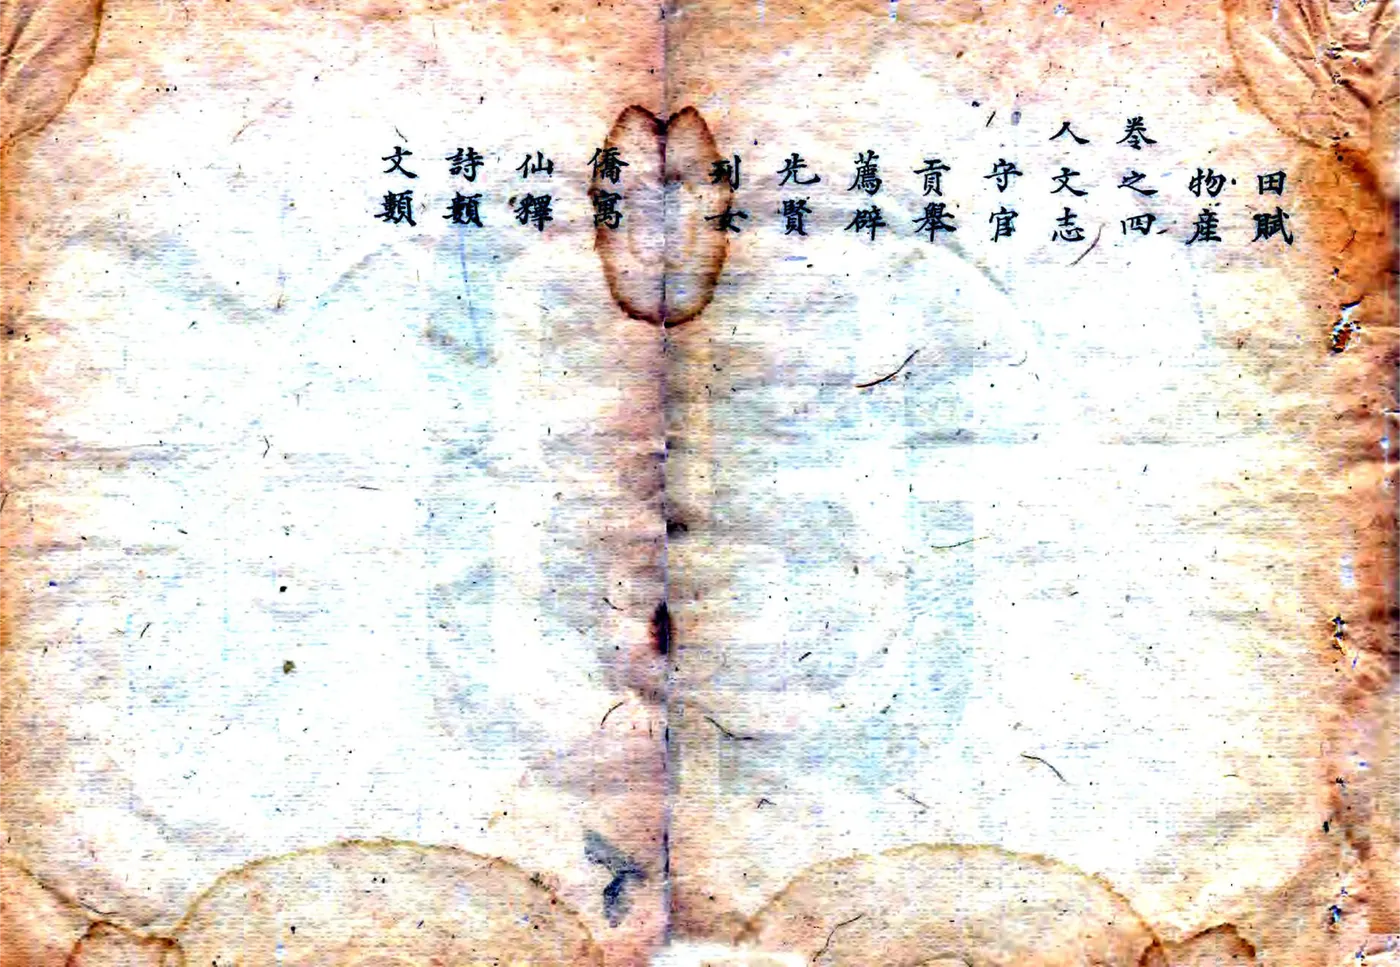 田賦
物産
卷之四
人文志
守官
貢舉
薦辟
先賢
列女
僑寓
仙釋
詩類
文類